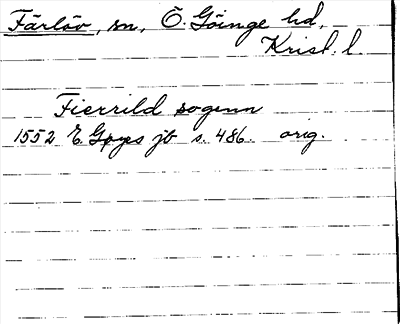 Färlöv, sn, Ö. Göinge hd,
Krist. l.
Fierrild sogenn
1552 E. Gyes jb s. 486. orig.